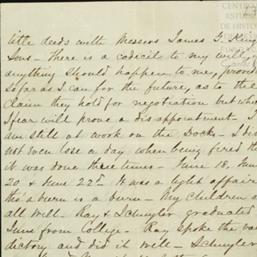 CENTRO
ESTUDI
DE HISTO
title deeds with Messrs James G. King
Sons - there is a codicil to my will
anything should happen to me, provid
so far as I can for the future, as to the
claim they hold for negotiation but whi
I fear will prove a disappointment. I
am still at work on the Docks - I did
not even lose a day when being fired th
it was done three times - June 18, Jun
20 & June 22nd. It was a light affair
tho' a burn is a burn - My children a
all well. Ray & Schuyler graduated
June from College - Ray spoke the val
dictory and did it well - Schuyler